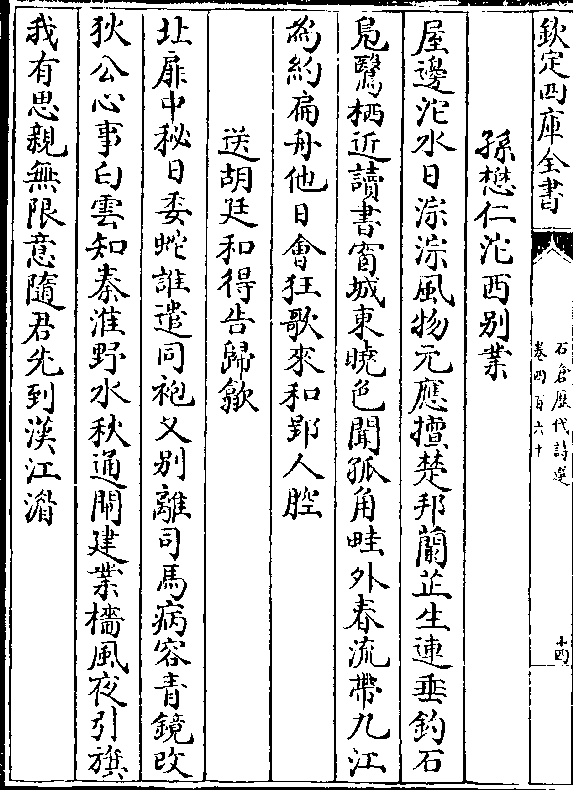 欽定四庫全書
石倉歷代詩選
卷四百六十
十四
孫懋仁沱西别業
屋邊沱水日淙淙風物元應擅楚邦蘭芷生連垂釣石
鳬鷖栖近讀書窗城東曉色聞孤角畦外春流帶九江
為約扁舟他日會狂歌來和郢人腔
送胡廷和得告歸歙
北扉中秘日委蛇誰遣同袍又别離司馬病容青鏡改
狄公心事白雲知秦淮野水秋通閘建業檣風夜引旗
我有思親無限意隨君先到漢江湄